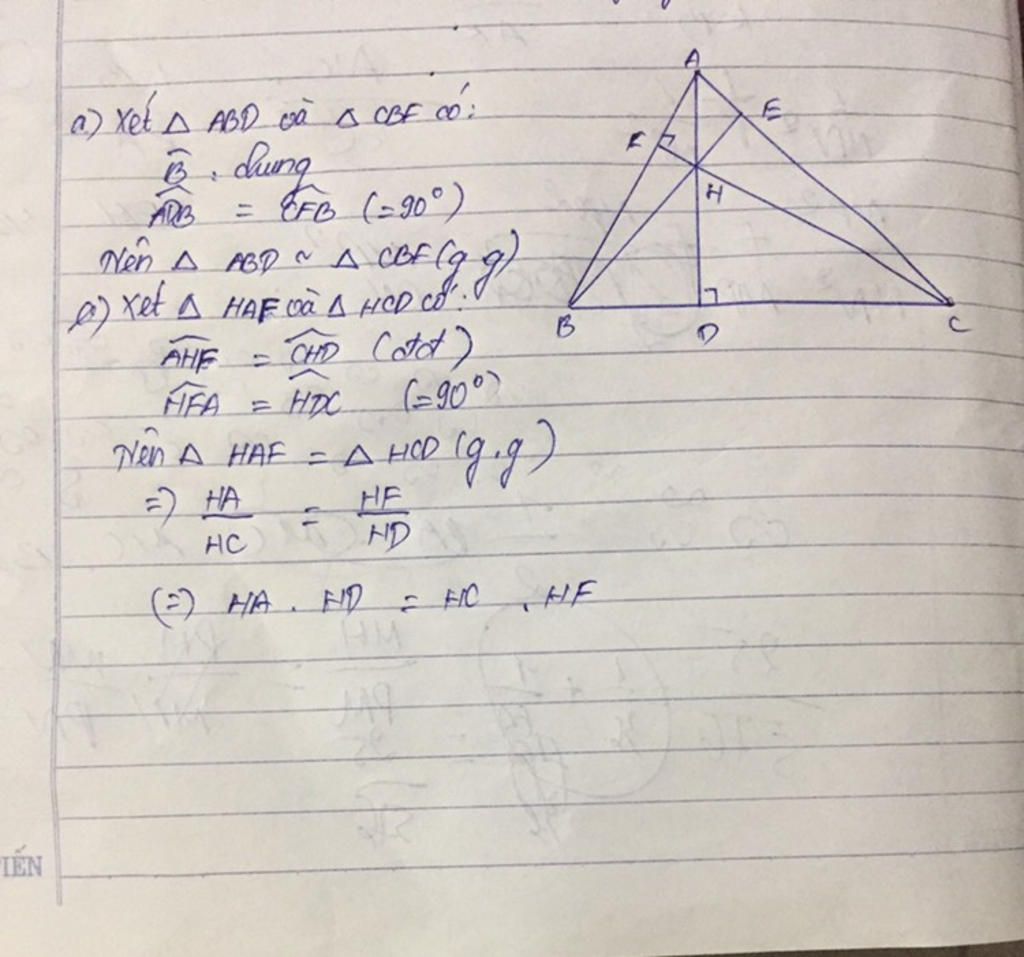 a) Xét △ ABD và △ CBF có:
B̂ : chung
A
E
F
H
B
D
C
ADB̂ = CFB̂ (=90°)
Nên △ ABD ~ △ CBF (g.g)
a) Xét △ HAF và △ HCD có:
AHF̂ = CHD̂ (đđ)
HFÂ = HDĈ (=90°)
Nên △ HAF = △ HCD (g.g)
=> HA/HC = HF/HD
(=) HA . HD = HC . HF
TIẾN